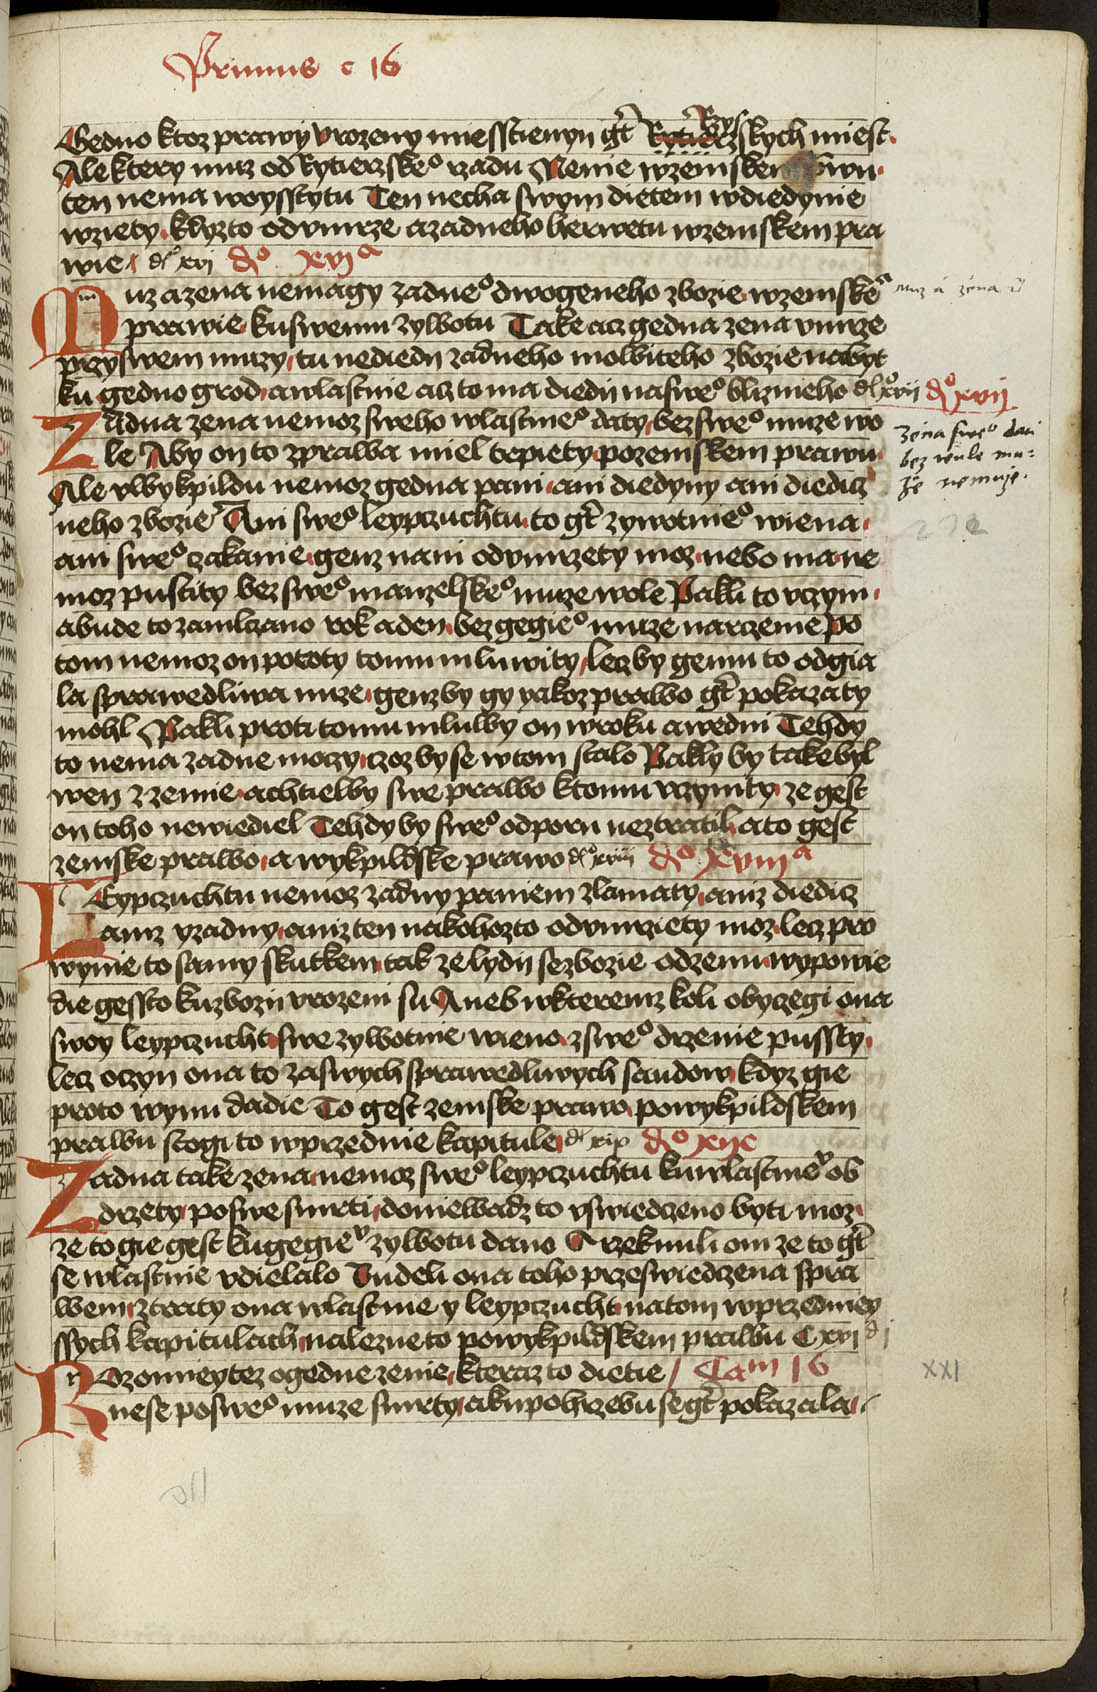 Primus c 16
Gedno ktoz prawy vrozeny miesstienyn gt Rzyskych miest
Ale ktery muz od Rytierske° rzadu Nenie wzemskem
ten nema woysstytu Ten necha swym dietem wdiedynie
wziety kdyzto odvmrze azadneho herwetu wzemskem pra
wie d° xvj d° xvja
Muz azena nemagy zadne° dwogeneho zbozie wzemske
prawie kuswemu zywotu Take acz gedna zena vmrze
przyswem muzy tu nediedy zadneho mowiteho zbozie nabyt
ku gedno grod awlastnie acz to ma diedy naswe° bliznieho d° xvij d° xvij
Zadna zena nemoz sweho wlastnie° daty bezswe° muze wo
le Aby on to zprawa miel trpiety pozemskem prawu
Ale vwykpildu nemoz gedna pani ani diedyny ani diedicz
neho zbozie Ani swe° leypczuchtu to gt zywotnie° wiena
ani swe° czakanie genz nani odvmrzety moz nebo ma ne
moz pustity bez swe° manzelske° muze wole Pakli to vczyni
abude to zamlczano rok aden bez gegie° muze narczenie Po
tom nemoz on pototy tomu mluwity lecz by gemu to odgia
la sprawedliwa nuze genz by gy yakoz prawo gt pokazaty
mohl Pakli proti tomu mluwy on wroku awedni Tehdy
to nema zadne moczy czoz by se wtom stalo Pakly by take byl
wen z zemie achtielby swe prawo ktomu vczynity ze gest
on toho newiediel Tehdy by swe° odporu neztratil ato gest
zemske prawo awykpildske prawo d° xviij d° xviija
Leypczuchtu nemoz zadny paniem zlamaty aniz diedicz
aniz vzadny aniz ten nakohozto odvmrziety moz lecz pro
wynie to samy skutkem tak ze lydy sezbozie odzenu wypowie
die gessto kuzbozy vrozeni su Aneb wkteremz koli obyczegi ona
swoy leypczucht swe zywotnie wieno zswe° drzenie pussty
lecz oczyn ona to zaswych sprawedliwych saudow kdyz gie
proto wynu dadie To gest zemske prawo powykpildskem
prawu stogi to wprzednie kapitule d° xix d° xix
Zadna take zena nemoz swe° leypczuchtu kuwlastnie° ob
drzety poswe smrti doniewadz to vswiedczeno byti moz
ze to gie gest kugegie° zywotu dano A rzeknuli oni ze to gt
se wlastnie vdielalo Budeli ona toho przeswiedczena spra
wem ztraty ona wlastnie y leypczucht natom wprzedniey
ssych kapitulach nalezne to powykpildskem prawu C xxi
Rozomneytez ogedne zenie kteraz to dietie Cam 16
nese poswe° muze smrty akupohrzebu se gt pokazala
muz a zena
Zena swe° dati
bez wule mu=
že nemuže.
XXI